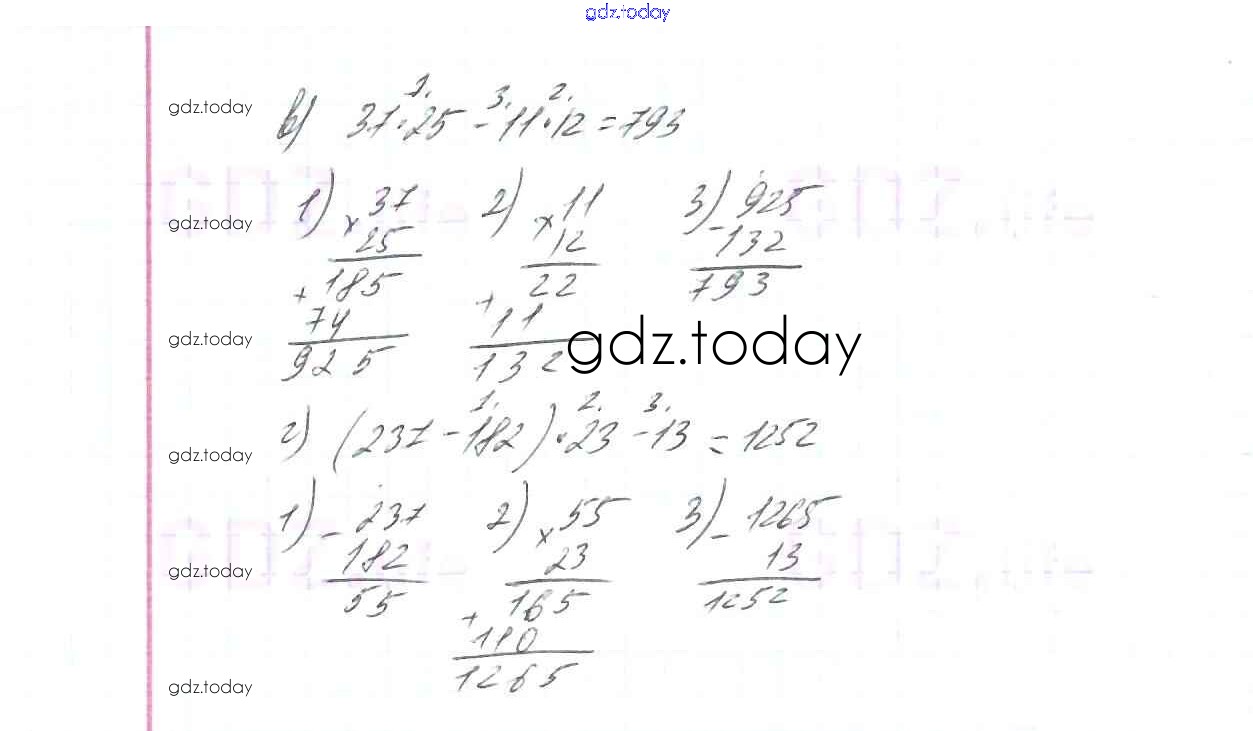 gdz.today
gdz.today
в) 37·25 - 11·12 = 793
1. 3. 2.
gdz.today
1) 37 2) 11 3) 925
× 25 × 12 - 132
+ 185 + 22 793
gdz.today
74 11
925 132
gdz.today
1. 2. 3.
г) (237 - 182)·23 - 13 = 1252
gdz.today
1) - 237 2) × 55 3) - 1265
182 23 13
gdz.today
55 165 1252
+ 110
1265
gdz.today